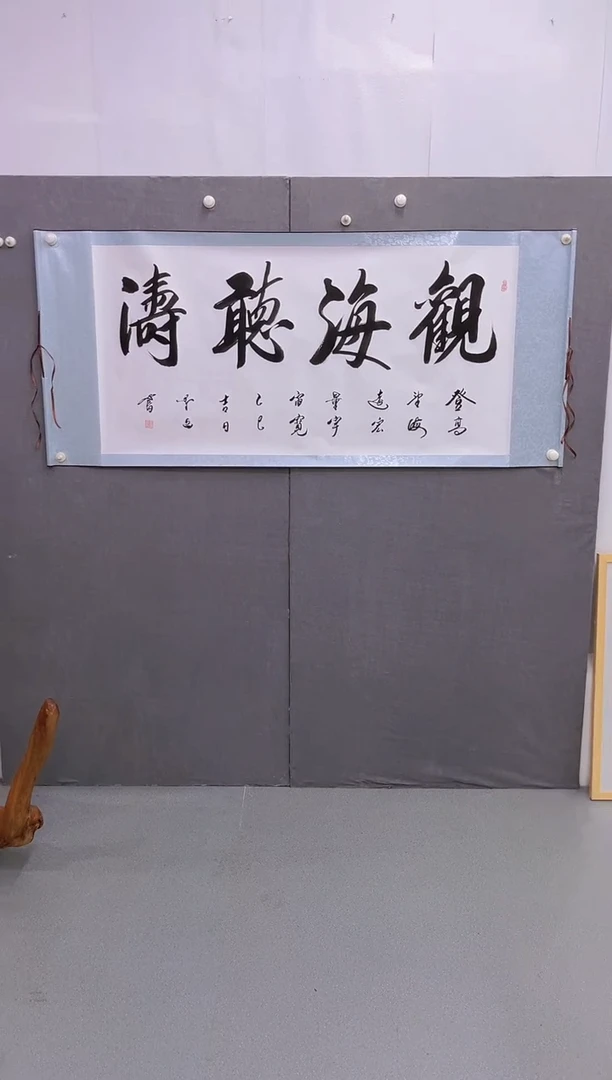 觀海聽濤
登高
望海
遠宏
量宇
宙寬
乙巳
吉日
書